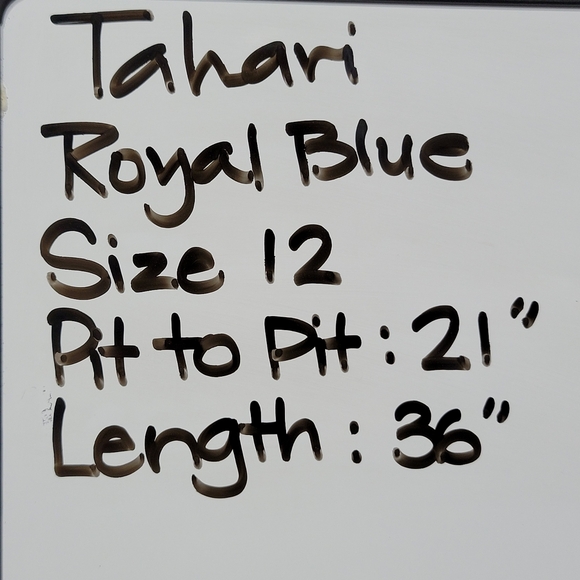 Tahari
Royal Blue
Size 12
Pit to Pit : 21"
Length : 36"